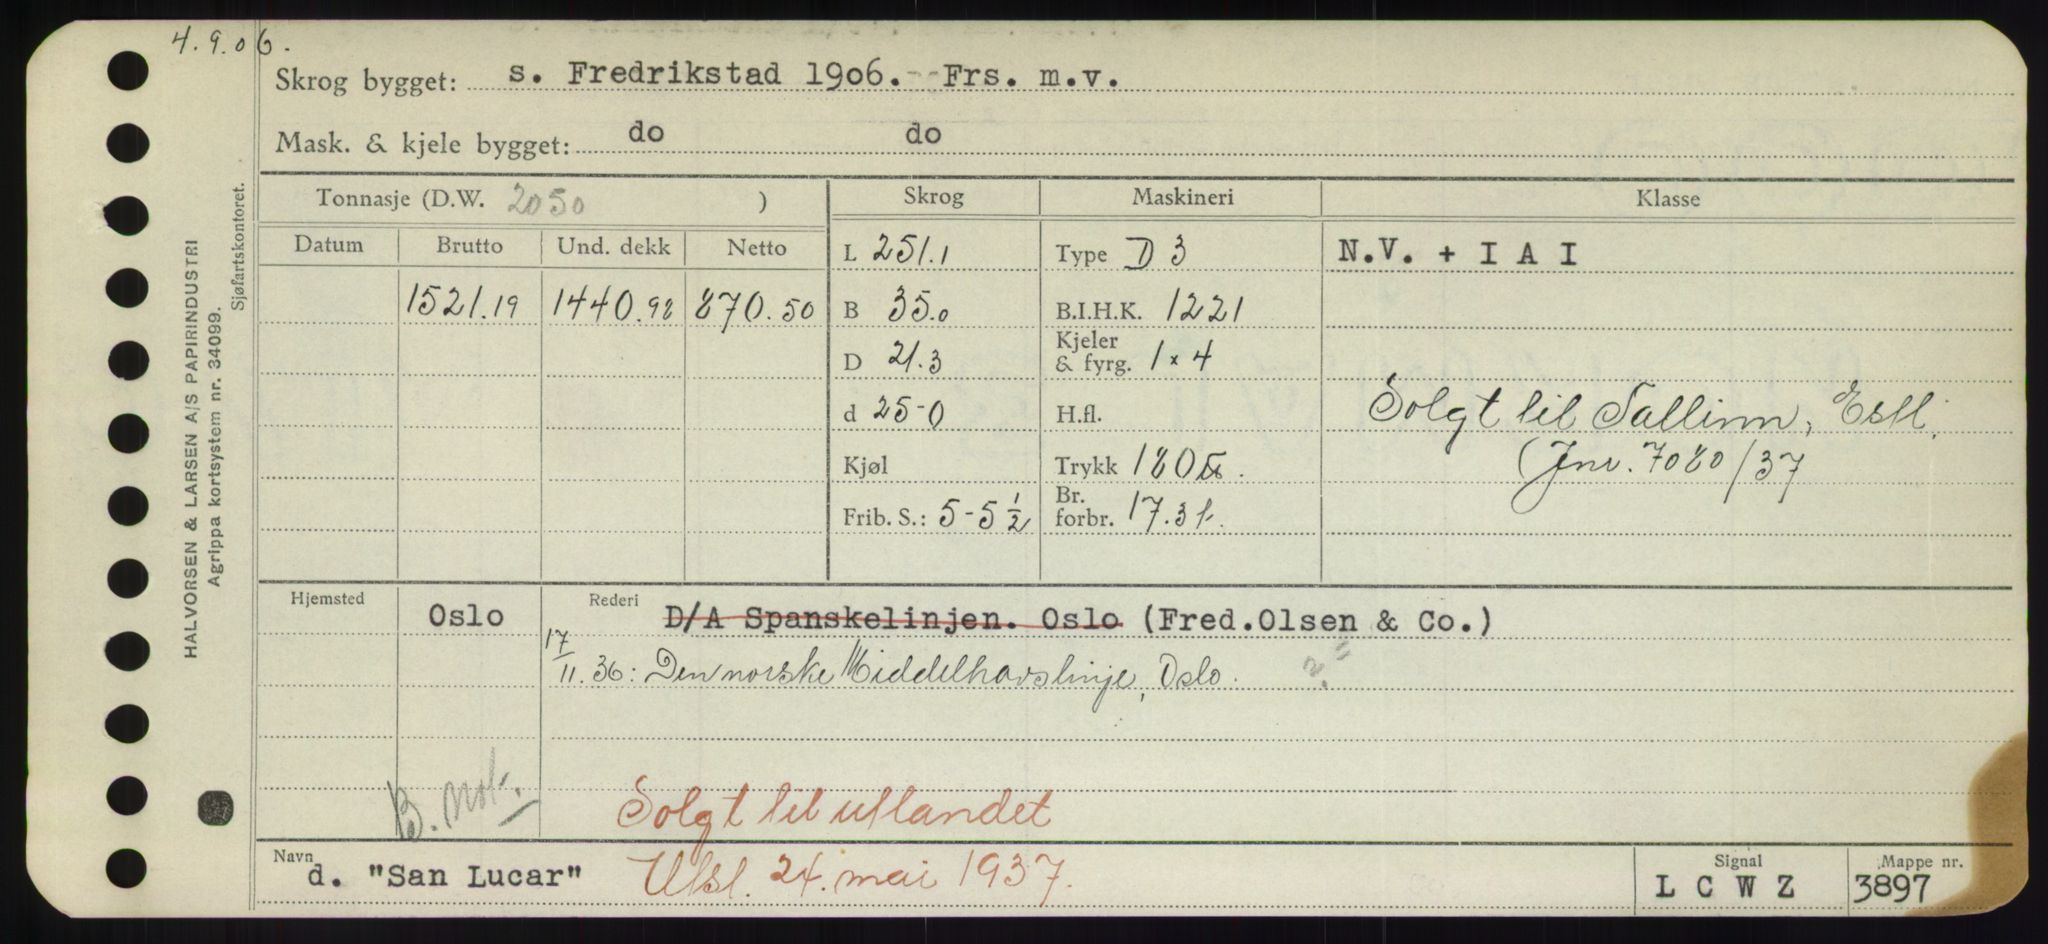 4.9.06.
Skrog bygget: s. Fredrikstad 1906. Frs. m.v.
Mask. & kjele bygget: do do
Tonnasje (D.W. 2050 ) Skrog Maskineri Klasse
Datum Brutto Und. dekk Netto L 251.1 Type D 3 N.V. + I A I
1521.19 1440.98 870.50 B 35.0 B.I.H.K. 1221
D 21.3 Kjeler & fyrg. 1 x 4
d 25-0 H.fl. Solgt til Tallinn, Estl.
Kjøl Trykk 180 (Jnr. 7080/37
Frib. S.: 5-5 1/2 Br. forbr. 17.3 t.
Hjemsted Oslo Rederi D/A Spanskelinjen. Oslo (Fred.Olsen & Co.)
17/11.36: Den norske Middelhavslinje, Oslo.
B. not.
Solgt til utlandet
Navn d. "San Lucar" Utsl. 24. mai 1937. Signal L C W Z Mappe nr. 3897
HALVORSEN & LARSEN A/S PAPIRINDUSTRI
Agrippa kortsystem nr. 34099.
Sjøfartskontoret.